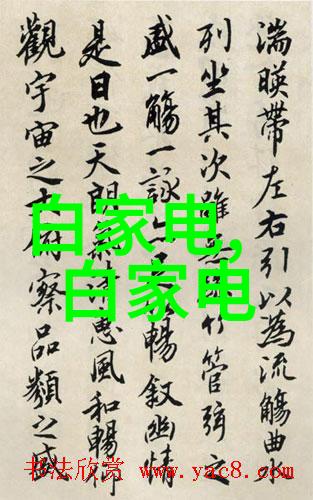 湍暎帶左右引以為流觴曲水
列坐其次雖無竹管弦之
盛一觴一詠暢叙幽情
是日也天朗清惠風和暢仰
觀宇宙之大俯察品類之盛
白家电,
白家电
书法欣赏 www.yac8.com